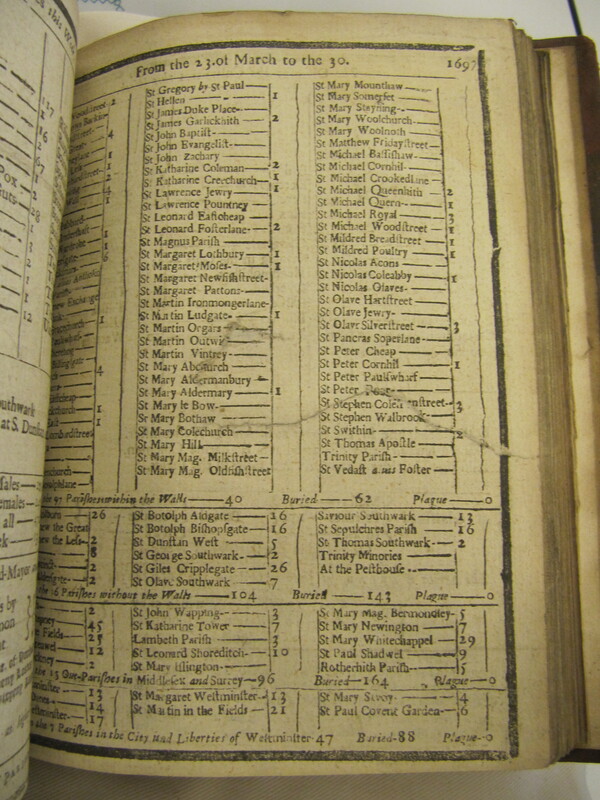 From the 23.of March to the 30. 1697
St Gregory by St Paul
St Hellen 1
St James Duke Place
St James Garlickhith 2
St John Baptist
St John Evangelist
St John Zachary
St Katharine Coleman 2
St Katharine Creechurch 1
St Lawrence Jewry 1
St Lawrence Pountney
St Leonard Eastcheap
St Leonard Fosterlane 2
St Magnus Parish
St Margaret Lothbury 1
St Margaret Moses 1
St Margaret Newfishstreet
St Margaret Pattons
St Martin Ironmongerlane
St Martin Ludgate 1
St Martin Orgars
St Martin Outwic
St Martin Vintrey
St Mary Abchurch
St Mary Aldermanbury
St Mary Aldermary 1
St Mary le Bow
St Mary Bothaw
St Mary Colechurch
St Mary Hill
St Mary Mag. Milkstreet
St Mary Mag. Oldfishstreet
St Mary Mounthaw
St Mary Somerset
St Mary Stayning
St Mary Woolchurch
St Mary Woolnoth
St Matthew Fridaystreet
St Michael Bassishaw
St Michael Cornhil
St Michael Crookedlane
St Michael Queenhith 2
St Michael Quern 1
St Michael Royal 3
St Michael Woodstreet 1
St Mildred Breadstreet 1
St Mildred Poultry 1
St Nicolas Acons
St Nicolas Coleabby 1
St Nicolas Olaves
St Olave Hartstreet
St Olave Jewry
St Olave Silverstreet 3
St Pancras Soperlane
St Peter Cheap
St Peter Cornhil 1
St Peter Paulswharf
St Peter
St Stephen Colemanstreet 3
St Stephen Walbrook
St Swithin 2
St Thomas Apostle
Trinity Parish
St Vedast alias Foster
97 Parishes within the Walls 40 Buried 62 Plague 0
St Botolph Aldgate 16
St Botolph Bishopsgate 16
St Dunstan West 5
St George Southwark 2
St Giles Cripplegate 26
St Olave Southwark 7
Saviour Southwark 13
St Sepulchres Parish 16
St Thomas Southwark 2
Trinity Minories
At the Pesthouse
16 Parishes without the Walls 104 Buried 143 Plague 0
St John Wapping 3
St Katharine Tower 7
Lambeth Parish 3
St Leonard Shoreditch 10
St Mary Islington
St Mary Mag. Bermondsey 5
St Mary Newington 7
St Mary Whitechappel 29
St Paul Shadwel 9
Rotherhith Parish 5
Out-Parishes in Middlesex and Surrey 96 Buried 164 Plague 0
St Margaret Westminster 13
St Martin in the Fields 21
St Mary Savoy 4
St Paul Covent Garden 6
7 Parishes in the City and Liberties of Westminster 47 Buried 88 Plague 0